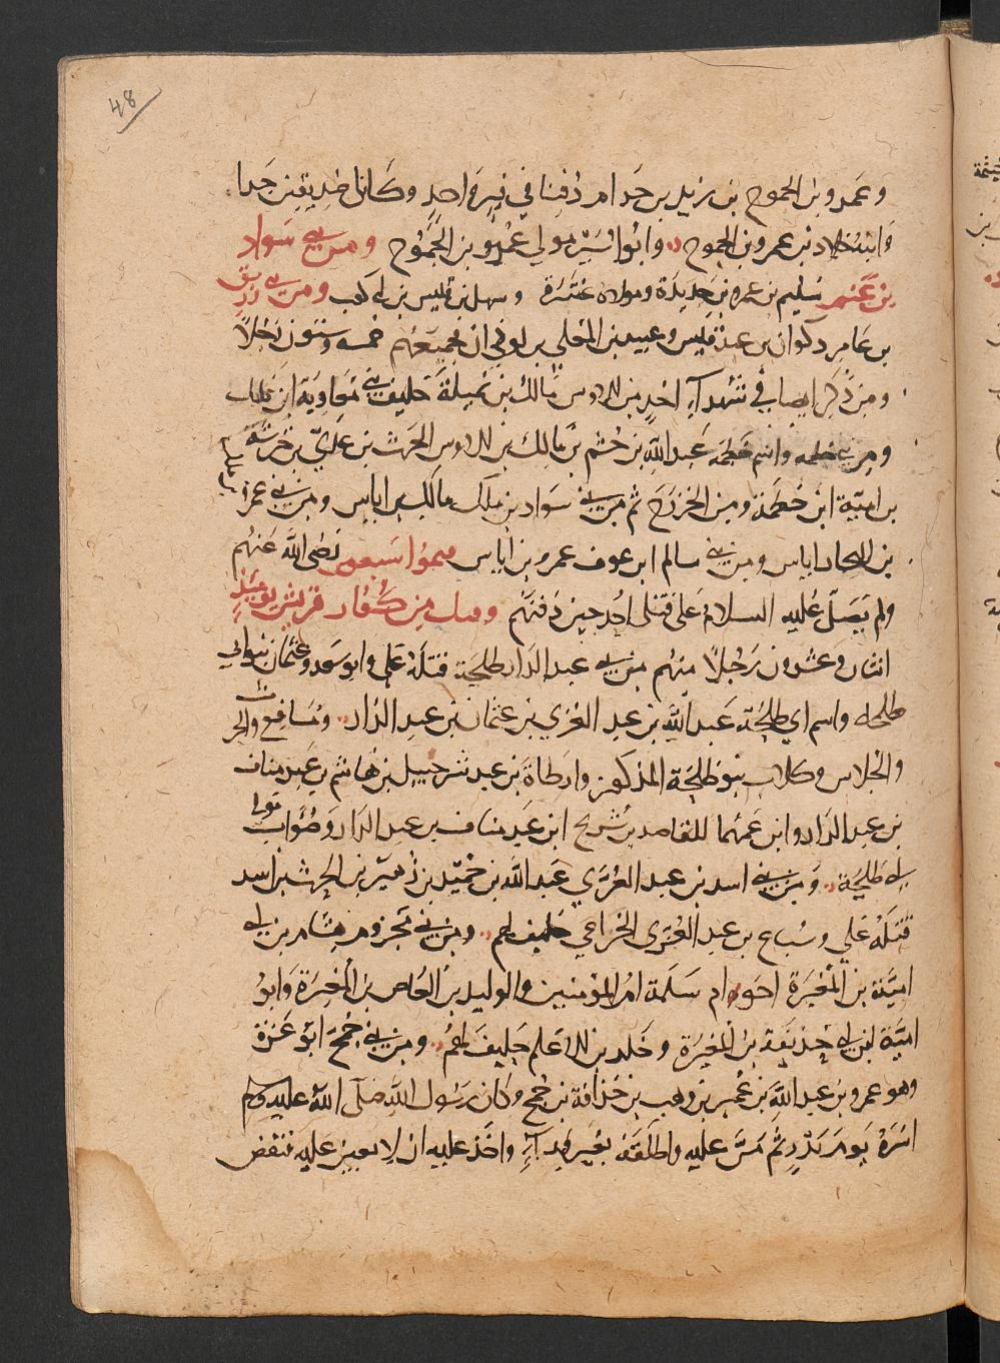 48
وعمرو بن الجموح بن زيد بن حرام دفنا في قبر واحد وكانا صديقين جدا
وابنه خلاد بن عمرو بن الجموح وابو ايسر مولي عمرو بن الجموح ومن بني سواد
بن غنم سليم بن عمرو بن حديدة ومولاه عنترة وسهل بن قيس بن ابي كعب ومن بني زريق
بن عامر ذكوان بن عبد قيس وعبيد بن المعلي بن لوذان فجميعهم خمسه وستون رجلا
ومن ذكر ايضا في شهداء احد من الاوس مالك بن نميلة حليف بني معاوية ابن مالك
ومن بني خطمه واسم خطمه عبد الله بن جشم بن مالك بن الاوس الحرث بن عدي بن خرشة
بن امية ابن خطمة ومن الخزرج ثم من بني سواد بن مالك مالك بن اياس ومن بني عمرو
بن النجار اياس ومن بني سالم ابن عوف عمرو بن اياس فتموا سبعين رضى الله عنهم
ولم يصل عليه السلام على قتلى احد حين دفنهم وقتل من كفار قريش يوميذ
اثنان وعشرون رجلا منهم من بني عبد الدار طلحة قتله على وابو سعد وعثمان بنوابي
طلحه واسم ابي طلحة عبد الله بن عبد العزي بن عثمان بن عبد الدار ومسافع
والجلاس وكلاب بنو طلحة المذكور وارطاة بن عبد شرحبيل بن هاشم بن عبد مناف
بن عبد الدار وابن عمهما القاسد بن شريح ابن عبد مناف بن عبد الدار وصؤاب مولى
ابي طلحة ومن بني اسد بن عبد العزي عبد الله بن حميد بن زهير بن الحرث بن اسد
قتله علي وسباع بن عبد العزى الخزاعي حليف لهم ومن بني مخزوم هشام بن ابي
امية بن المغيرة اخو ام سلمة ام المؤمنين والوليد بن العاص بن المغيرة وابو
امية بن ابي حذيفة بن المغيرة وخلد بن الاعلم حليف لهم ومن بني جمح ابو عزة
وهو عمرو بن عبد الله بن عمير بن وهب بن حذافة بن جمح وكان رسول الله صلى الله عليه وسلم
اسرة يوم بدر ثم من عليه واطلقه بغير فداء واخذ عليه ان لا يعين عليه فنقض